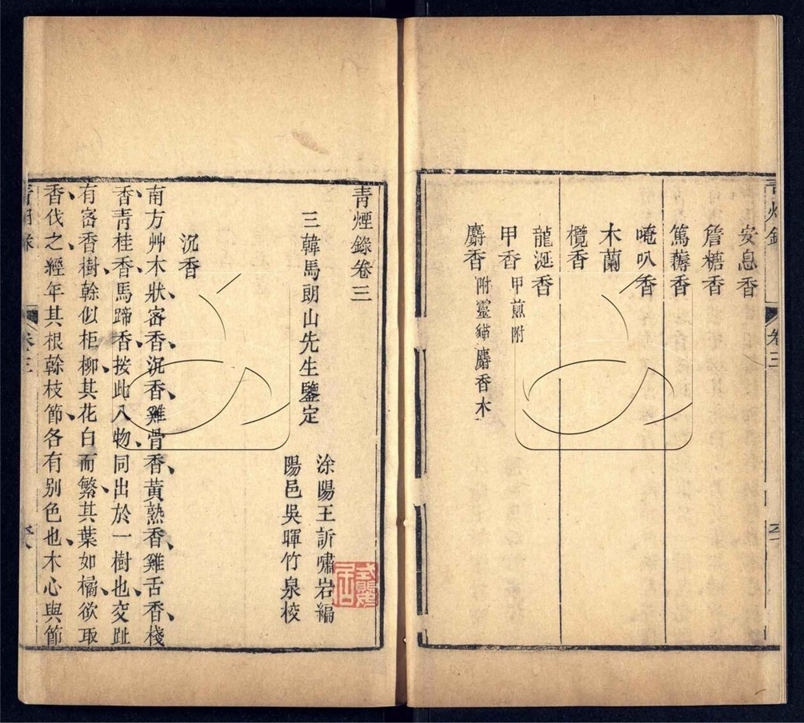 安息香
詹糖香
篤耨香
唵叭香
木蘭
欖香
龍涎香
甲香 甲煎附
麝香 附靈猫麝香木
青煙錄卷三
三韓馬朗山先生鑒定
涂陽王訢嘯岩編
陽邑吳暉竹泉校
沉香
南方艸木狀宻香沉香雞骨香黃熟香雞舌香棧
香青桂香馬蹄香按此八物同出於一樹也交趾
有宻香樹榦似柜柳其花白而繁其葉如橘欲取
香伐之經年其根榦枝節各有别色也木心與節
卷三